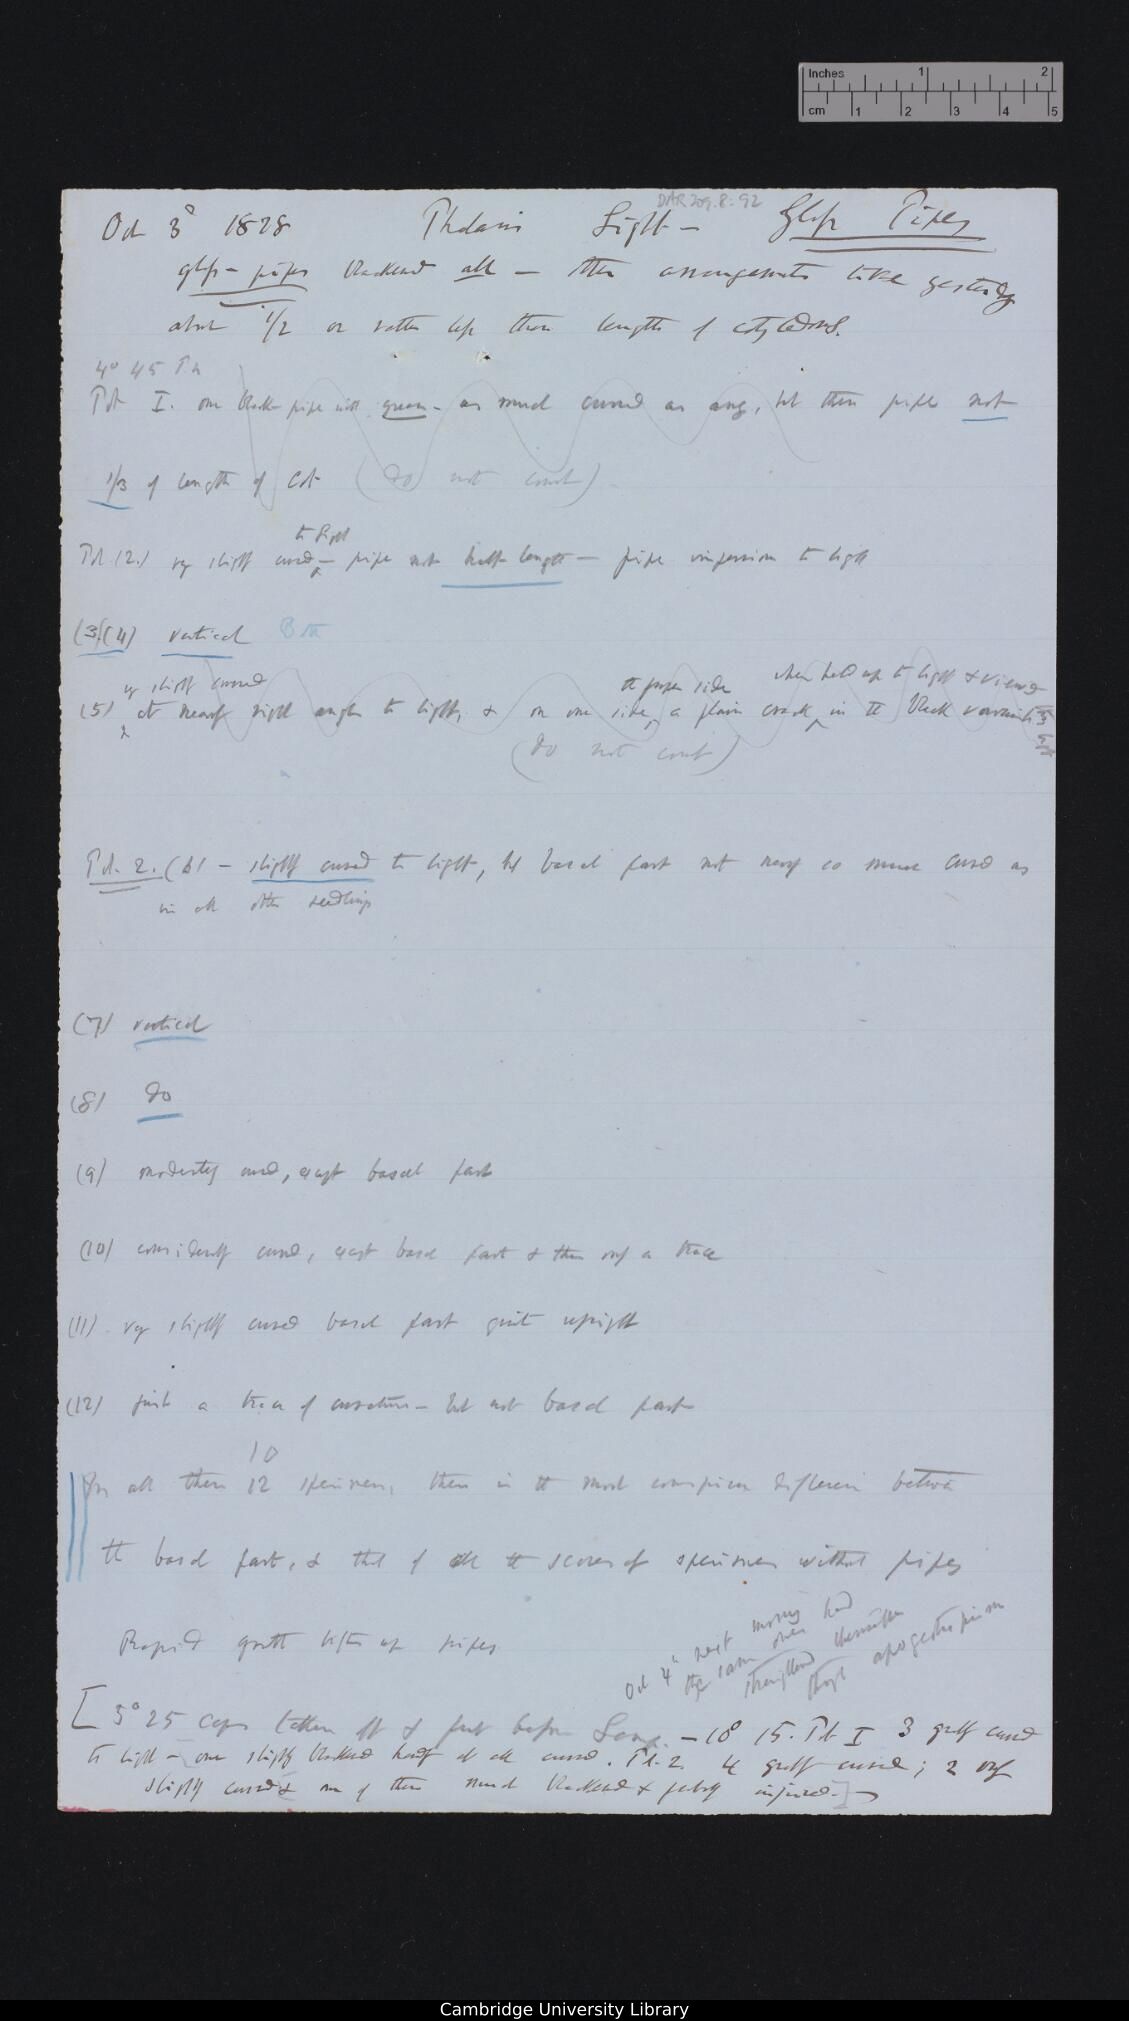 Inches 1 2
cm 1 2 3 4 5
DAR 209.8: 92
Oct 3d 1878 Phalaris Light — Glass Pipes
glass-pipes blackened all — then arrangements like yesterday
about 1/2 or rather less than length of cotyledons.
4° 45 P.m
Pot I. one black pipe with green — as much curved as any, but then pipe not
1/3 of length of Cot (do not count)
to light
Pot (2.) very slightly curved — pipe not half length — pipe to light
(3)(4) vertical Both
very slightly curved the proper side when held up to light & viewed
(5) at nearly right angles to light, & on one side, a plain crack in the black varnish
(do not count)
Pot. 2. (6) — slightly curved to light, but basal part not nearly so much curved as
in all other seedlings
(7) vertical
(8) do
(9) moderately curved, except basal part
(10) considerably curved, except basal part & then only a trace
(11) very slightly curved basal part quite upright
(12) just a trace of curvature — but not basal part
10
In all these 12 specimens, there is the most conspicuous difference between
the basal part, & that of all the scores of specimens without pipes
Rapid growth lifts up pipes.
Oct 4th next morning had
the same ones
straightened themselves
through apogeotropism
[5° 25 caps taken off & put before Lamp. — 10° 15. Pot I 3 greatly curved
to light — one slightly blackened hardly at all curved. Pot. 2. 4 greatly curved; 2 only
slightly curved & one of these much blackened & probably injured.]
Cambridge University Library